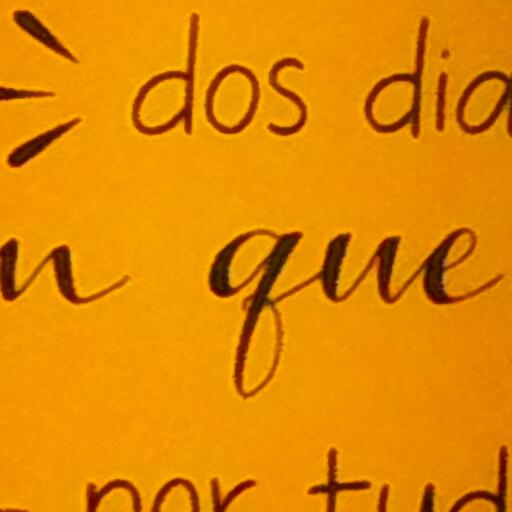 dos dia
n que
por tud